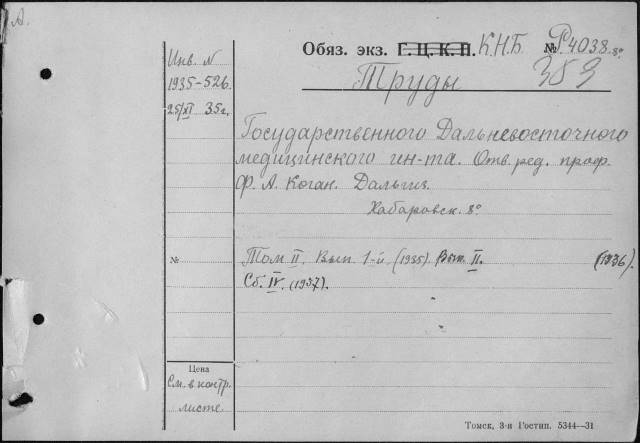 А.
Обяз. экз. Г.Ц.К.П. К.Н.Б № Р4038. 8°
Инв. N
1935-526
25/XI 35г.
383
Труды
Государственного Дальневосточного
медицинского ин-та. Отв. ред. проф.
Ф. А. Коган. Дальгиз.
Хабаровск. 8°
№ Том II. Вып. 1-й (1935). Вып. II. (1936)
Сб. IV. (1937).
Цена
См. в контр.
листе
Томск, 3-я Гостип. 5344—31